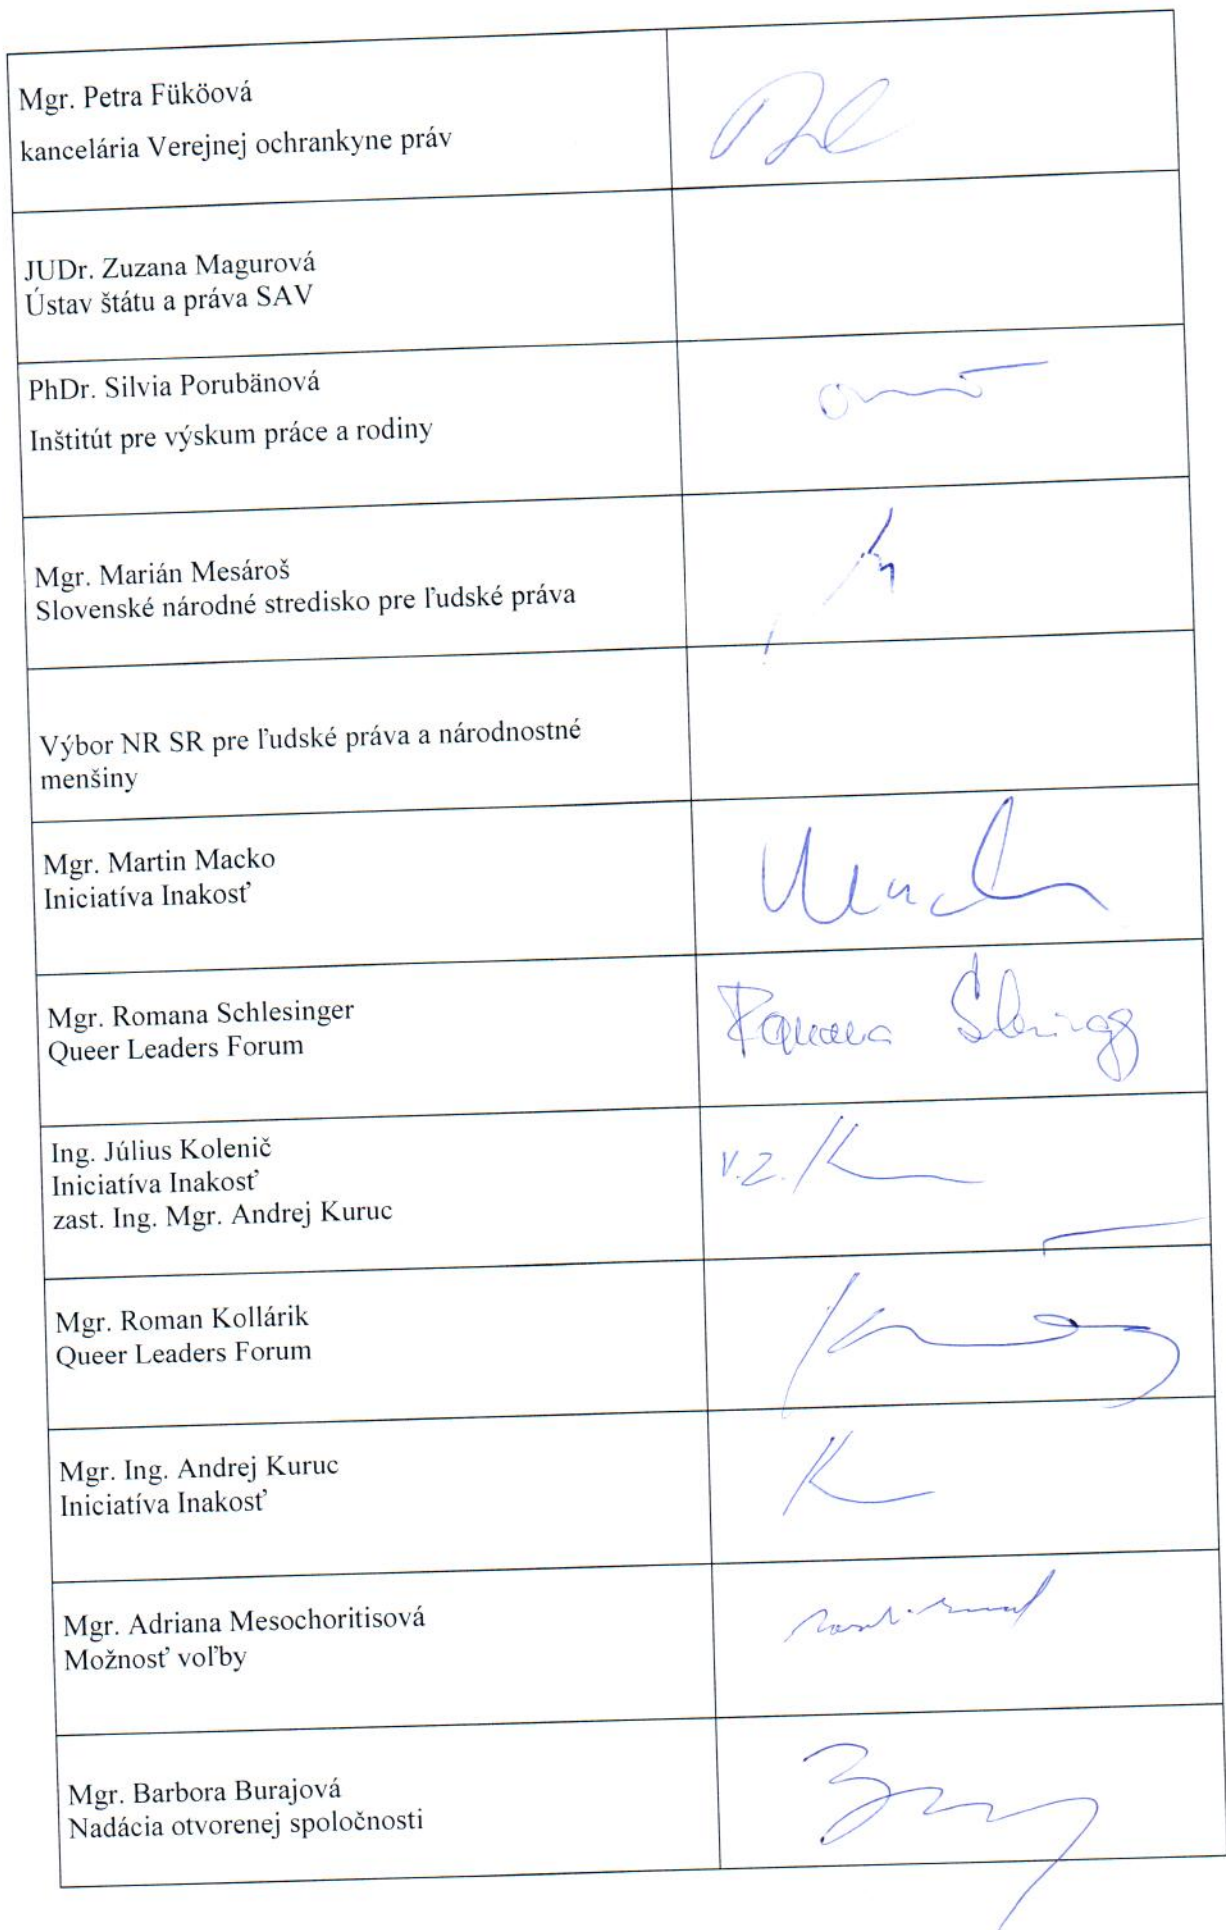 Mgr. Petra Füköová
kancelária Verejnej ochrankyne práv
JUDr. Zuzana Magurová
Ústav štátu a práva SAV
PhDr. Silvia Porubänová
Inštitút pre výskum práce a rodiny
Mgr. Marián Mesároš
Slovenské národné stredisko pre ľudské práva
Výbor NR SR pre ľudské práva a národnostné
menšiny
Mgr. Martin Macko
Iniciatíva Inakosť
Mgr. Romana Schlesinger
Queer Leaders Forum
Romana
Ing. Július Kolenič
Iniciatíva Inakosť
zast. Ing. Mgr. Andrej Kuruc
v.z.
Mgr. Roman Kollárik
Queer Leaders Forum
Mgr. Ing. Andrej Kuruc
Iniciatíva Inakosť
Mgr. Adriana Mesochoritisová
Možnosť voľby
Mgr. Barbora Burajová
Nadácia otvorenej spoločnosti